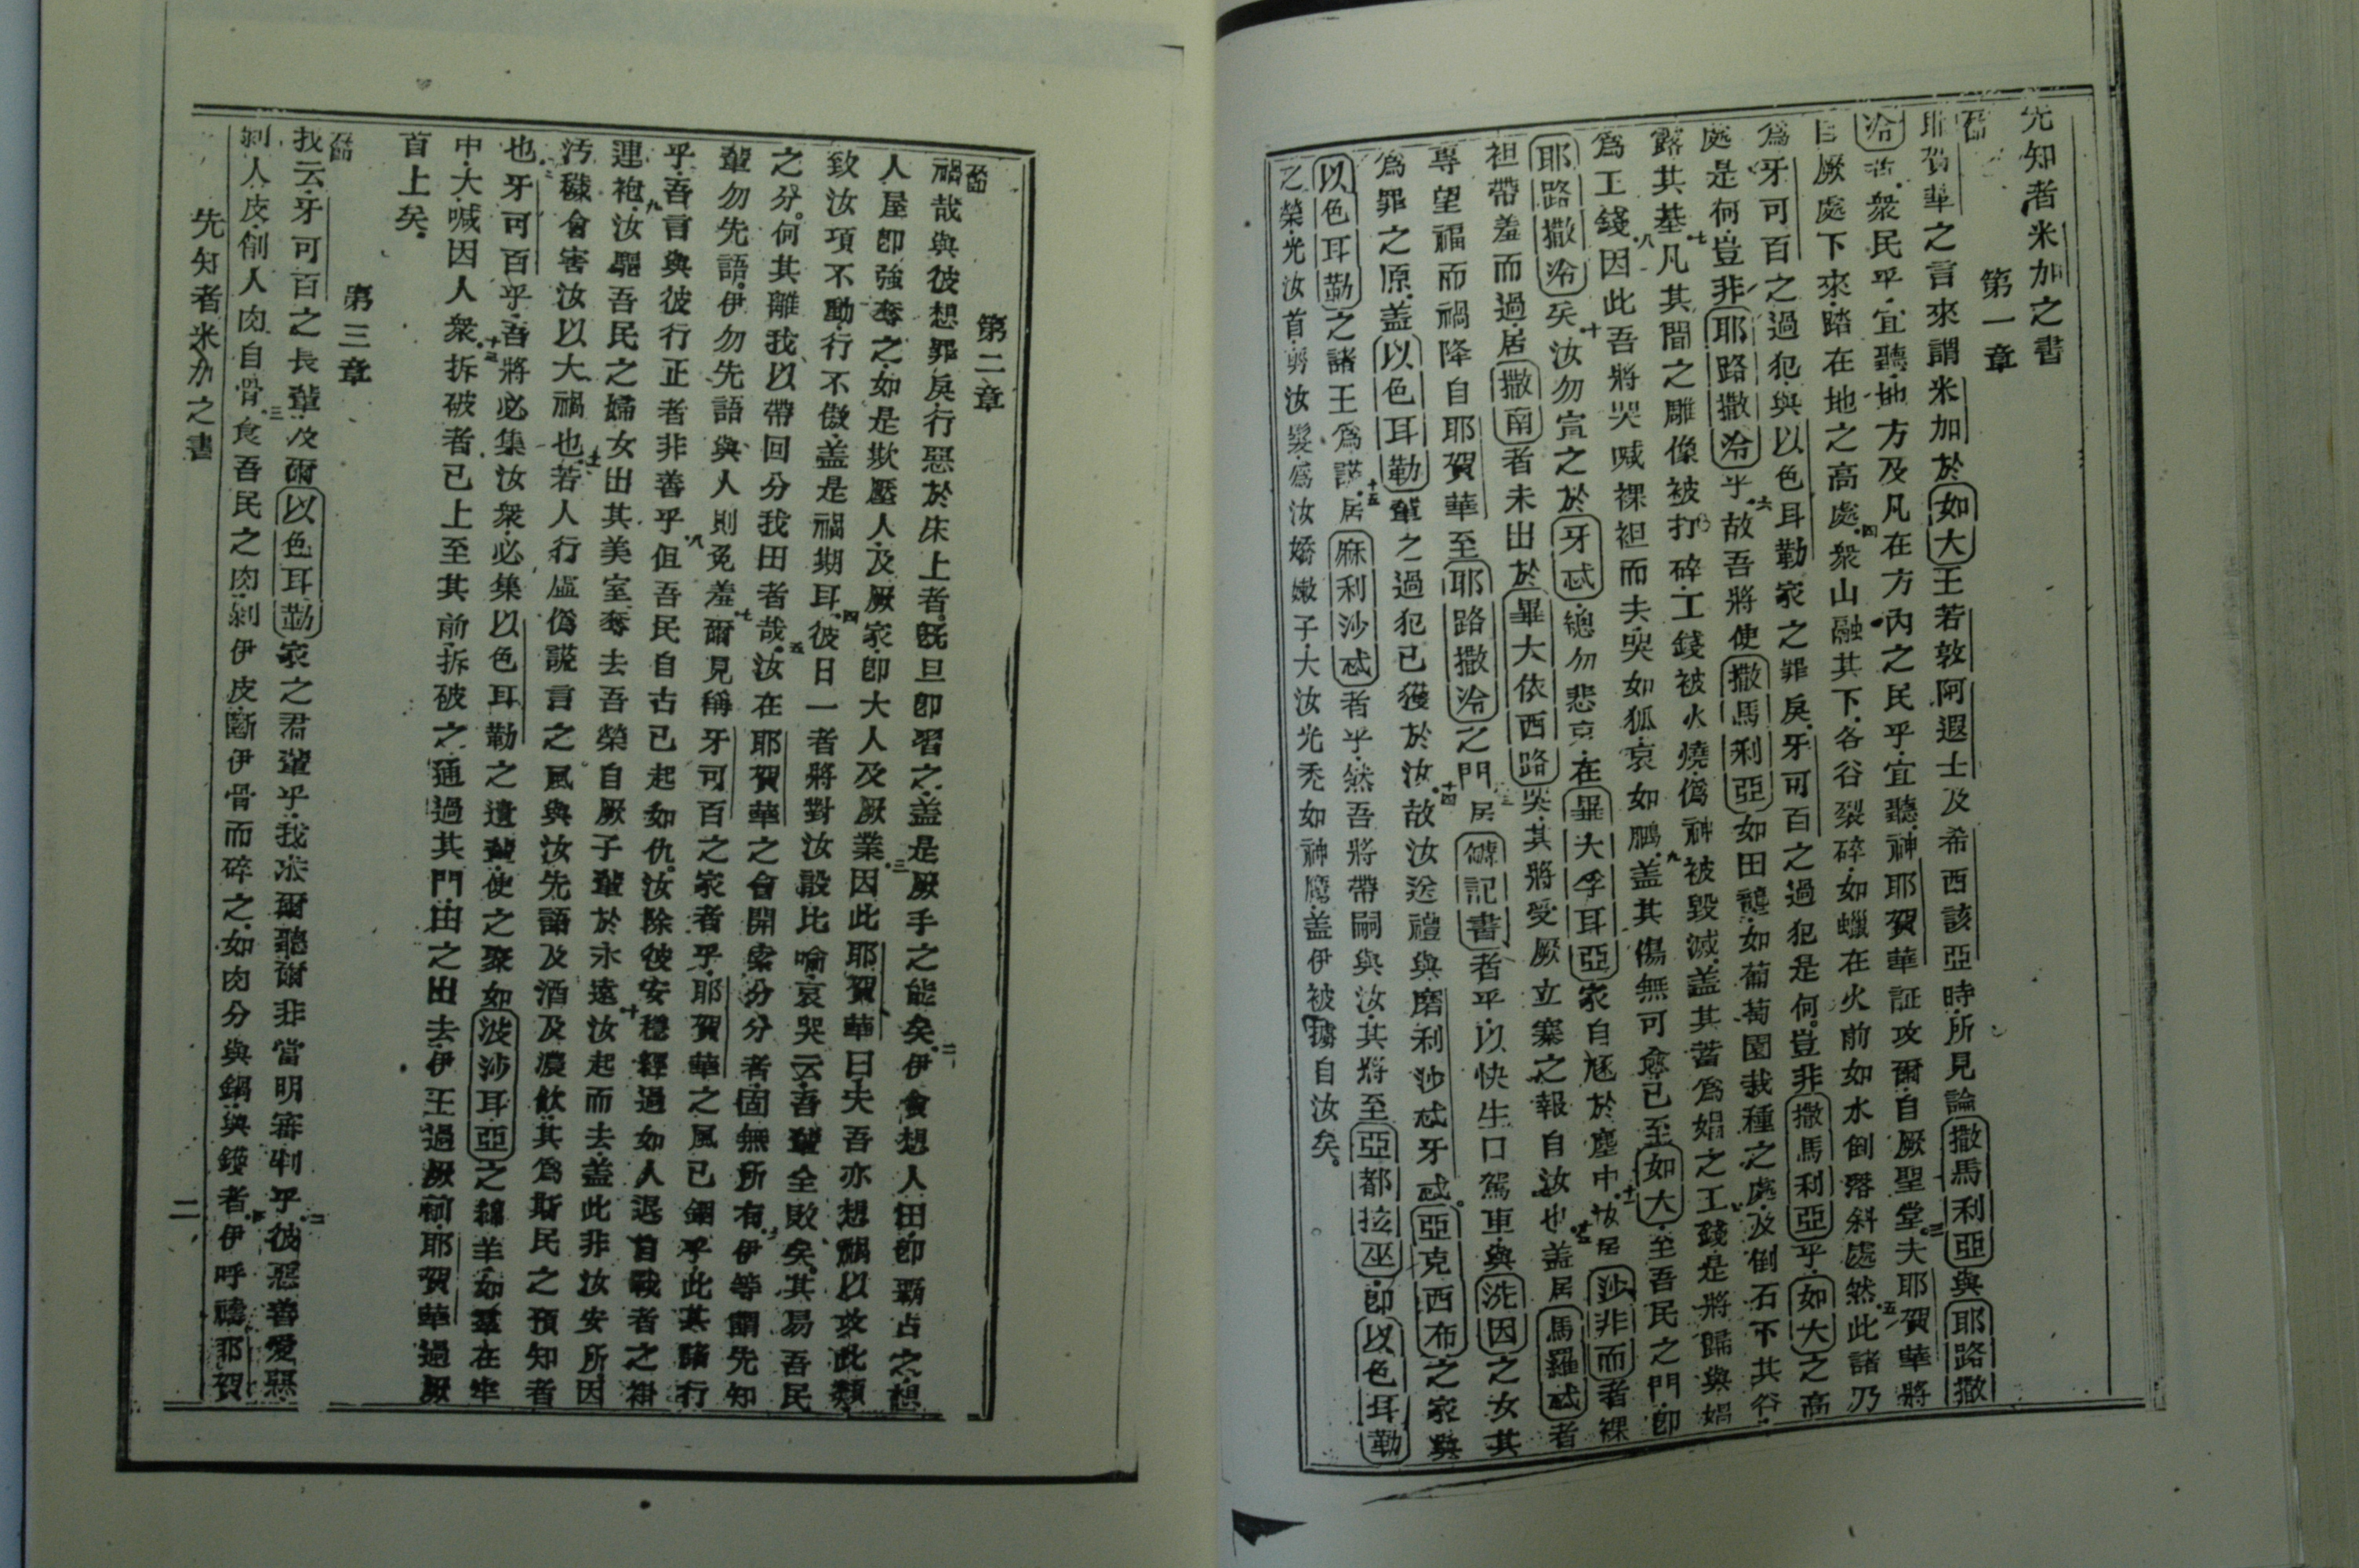 先知者米加之書
第一章
耶賀華之言來謂米加於如大王若敦阿遐士及希西該亞時所見論撒馬利亞與耶路撒
冷者衆民乎宜聽地方及凡在方內之民乎宜聽神耶賀華証攻爾自厥聖堂夫耶賀華將
自厥處下來踏在地之高處四衆山融其下各谷裂碎如蠟在火前如水倒落斜處然五此諸乃
爲牙可百之過犯與以色耳勒家之罪戾牙可百之過犯是何豈非撒馬利亞乎如大之高
處是何豈非耶路撒冷乎六故吾將使撒馬利亞如田壟如葡萄園栽種之處及倒石下其谷
露其基七凡其間之雕像被打碎工錢被火燒僞神被毀滅蓋其蓄爲娼之工錢是將歸與娼
爲工錢八因此吾將哭喊裸袒而夫哭如狐哀如鵩九蓋其傷無可愈已至如大至吾民之門卽
耶路撒冷矣十汝勿宣之於牙忒總勿悲哀在畢大孚耳亞家自𡋯於塵中十一汝居沙非而者裸
袒帶羞而過居撒南者未出於畢大依西路哭其將受厥立寨之報自汝也十二蓋居馬羅忒者
專望福而禍降自耶賀華至耶路撒冷之門居記書者乎以快生口駕車與洗因之女其
爲罪之原蓋以色耳勒輩之過犯已獲於汝十四故汝送禮與磨利沙忒牙忒亞克西布之家與
以色耳勒之諸王爲謊十五居麻利沙忒者乎然吾將帶嗣與汝其將至亞都拉巫卽以色耳勒
之榮光汝首剪汝髮爲汝嬌嫩子大汝光禿如神鷹蓋伊被擄自汝矣
第二章
禍哉與彼想罪戾行惡於床上者旣旦卽習之蓋是厥手之能矣二伊貪想人田卽霸占之想
人屋卽強奪之如是欺壓人及厥家卽大人及厥業三因此耶賀華曰夫吾亦想禍以攻此類
致汝項不動行不傲蓋是禍期耳四彼日一者將對汝設比喻哀哭云吾輩全敗矣其易吾民
之分何其離我以帶回分我田者哉五汝在耶賀華之會開索分分者固無所有六伊等謂先知
輩勿先語伊勿先語與人則免羞七爾見稱牙可百之家者乎耶賀華之風已錮乎此其諸行
乎吾言與彼行正者非善乎八但吾民自古已起如仇汝除彼安穩經過如人退自戰者之褂
連袍九汝驅吾民之婦女出其美室奪去吾榮自厥子輩於永遠十汝起而去蓋此非汝安所因
汚穢會害汝以大禍也十一若人行虛僞謊言之風與汝先語及酒及濃飲其爲斯民之預知者
也十二牙可百乎吾將必集汝衆必集以色耳勒之遺輩使之聚如波沙耳亞之綿羊如羣在牢
中大喊因人衆十三拆破者已上至其前拆破之通過其門由之出去伊王過厥前耶賀華過厥
首上矣
第三章
我云牙可百之長輩及爾以色耳勒家之君輩乎我求爾聽爾非當明審判乎二彼惡善愛惡
剝人皮削人肉自骨三食吾民之肉剝伊皮斷伊骨而碎之如肉分與鍋與鑊者四伊呼禱耶賀
先知者米加之書 二